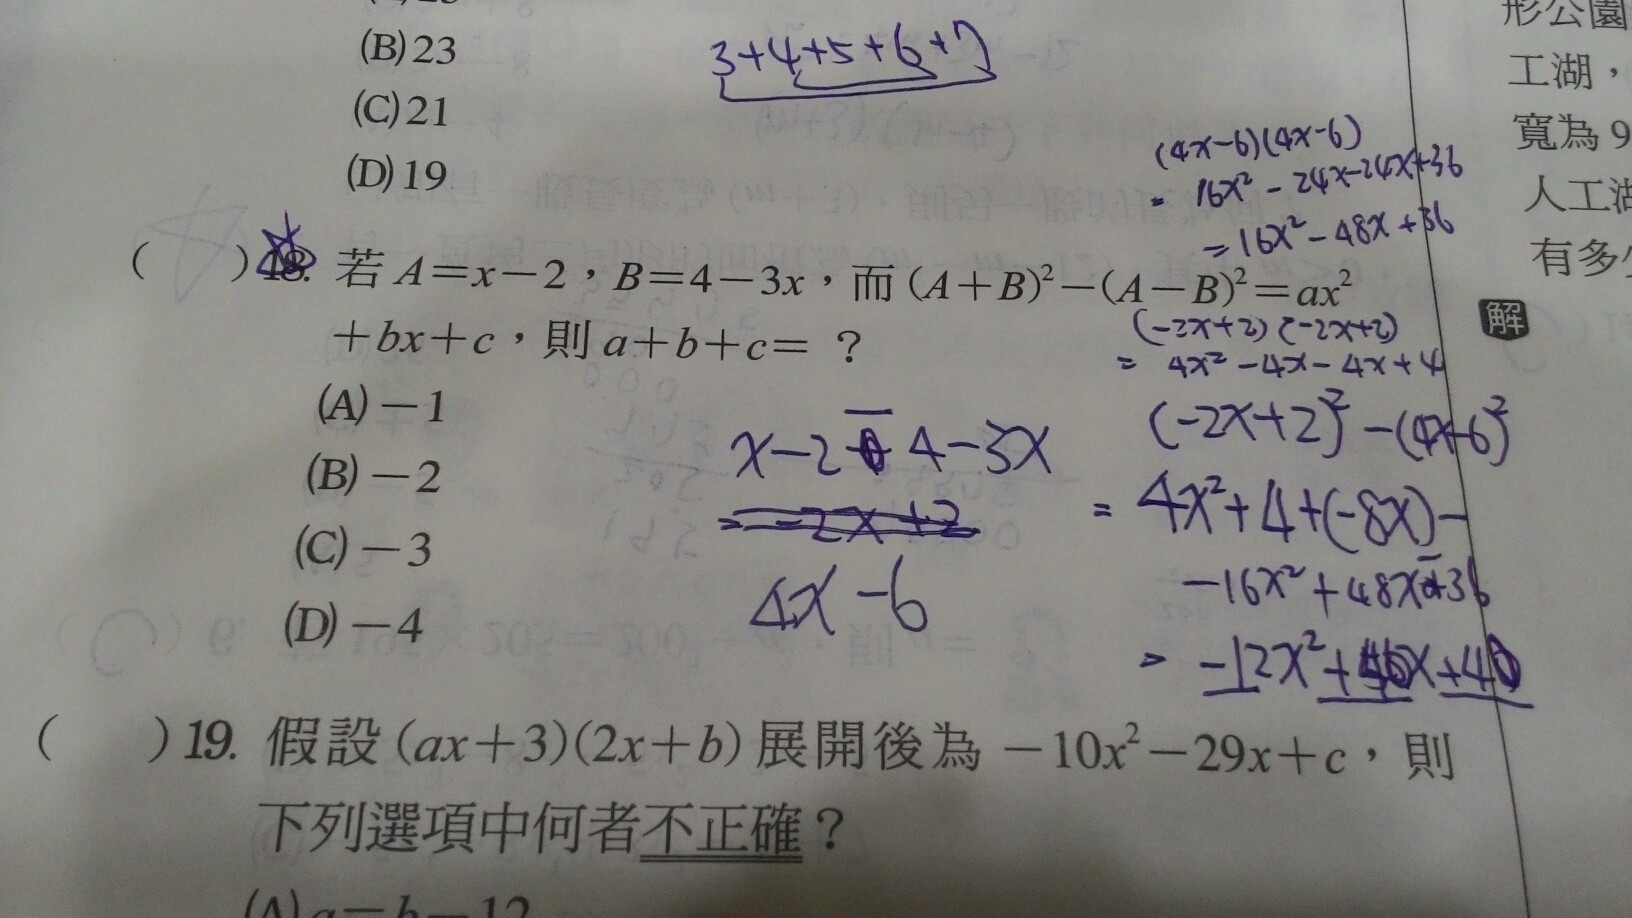 (B) 23
(C) 21
(D) 19
3+4+5+6+7
(4x-6)(4x-6)
= 16x²-24x-24x+36
= 16x²-48x+36
( ) 18. 若 A=x-2，B=4-3x，而 (A+B)²-(A-B)²=ax²
+bx+c，則 a+b+c= ？
(-2x+2)(-2x+2)
= 4x²-4x-4x+4
(A) -1
(B) -2
(C) -3
(D) -4
x-2- 4-3x
= -2x+2
4x-6
(-2x+2)²-(4x-6)²
= 4x²+4+(-8x)-
-16x²+48x-36
= -12x²+40x+40
( ) 19. 假設 (ax+3)(2x+b) 展開後為 -10x²-29x+c，則
下列選項中何者不正確？
(A) a-b=12
形公園
工湖，
寬為 9
人工湖
有多少
解